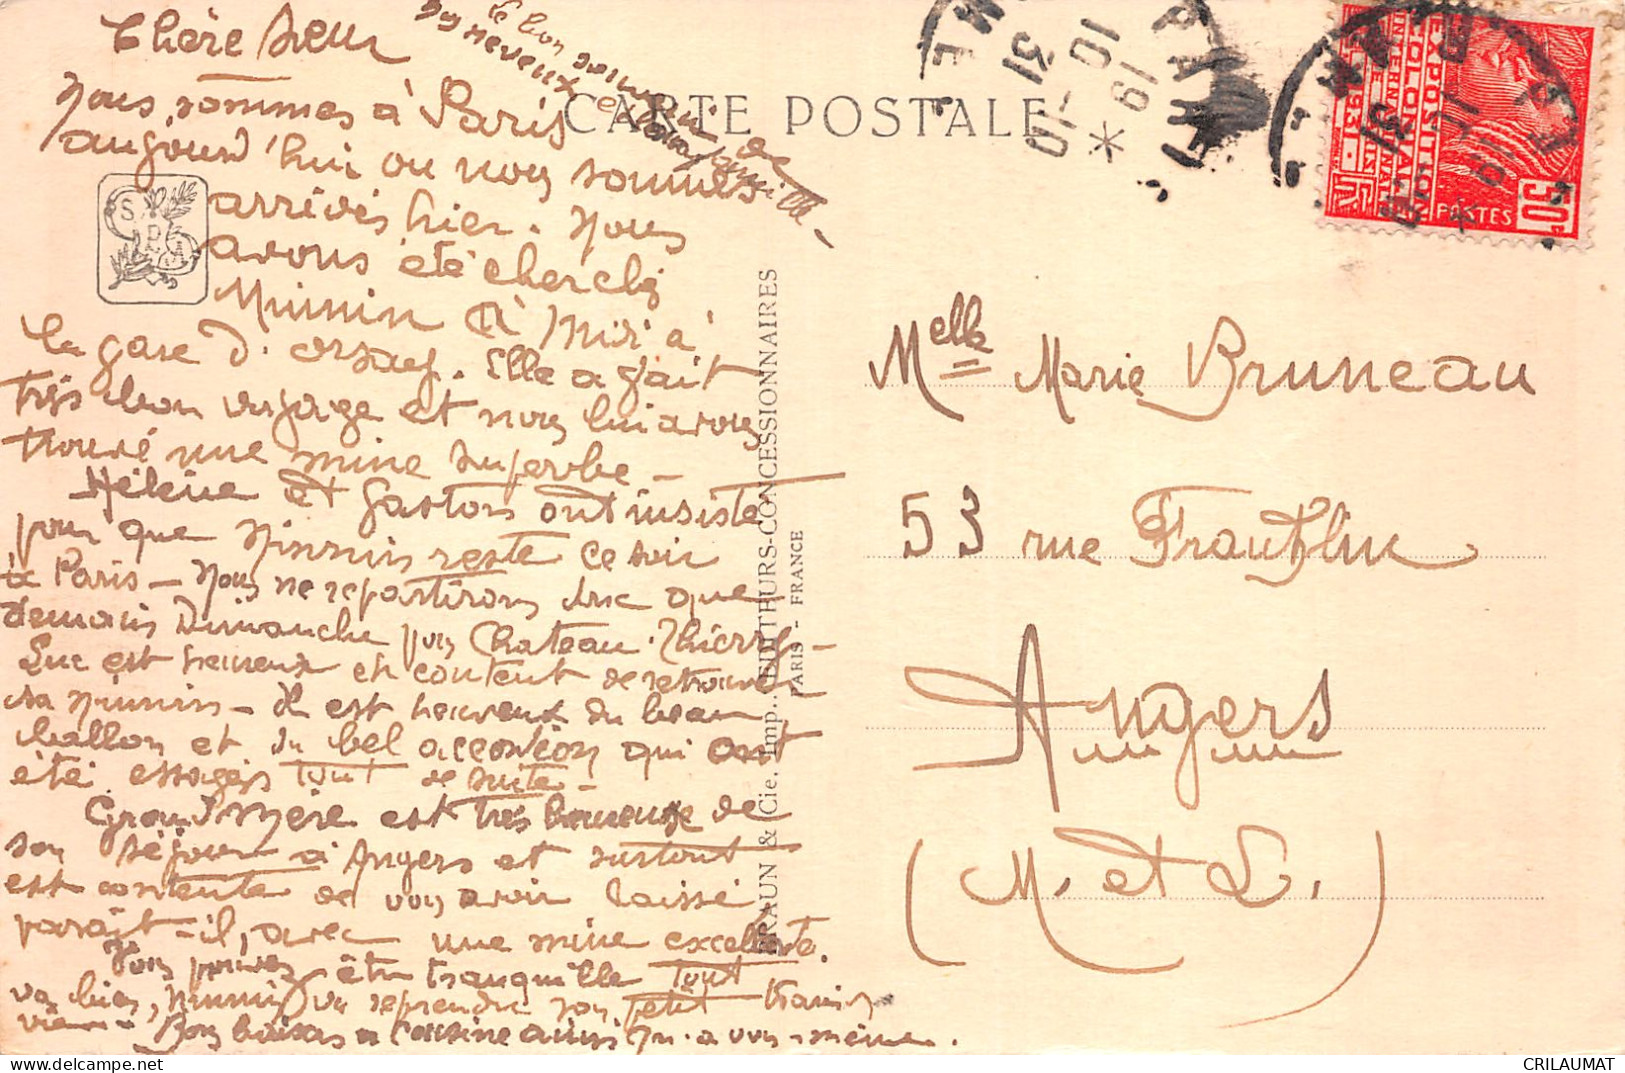 le bon souvenir de
vos neveux et
Chère Sœur
CARTE POSTALE
Nous sommes à Paris
aujourd'hui où nous sommes
arrivés hier. Nous
avons été cherché
Mimin à Midi à
la gare d'orsay. Elle a fait
très bon voyage et nous lui avons
trouvé une mine superbe -
Hélène et Gaston ont insisté
pour que Mimin reste ce soir
à Paris - Nous ne repartirons donc que
demain Dimanche pour Chateau-Thierry -
Luc est heureux et content de retrouver
sa Mimin - Il est heureux du beau
ballon et du bel accordéon qui ont
été essayés tout de suite -
Grand Mère est très heureuse de
son séjour à Angers et surtout
est contente de vous avoir laissé
parait-il, avec une mine excellente.
Vous pouvez être tranquille tout
va bien, Mimin va reprendre son petit train
Bons baisers à cousine ainsi qu'à vous-même.
SPA
BRAUN & Cie, Imp., EDITEURS-CONCESSIONNAIRES
PARIS - FRANCE
PARIS
19
10-10
31
EXPOSITION
COLONIALE
INTERNATIONALE
PARIS 1931
RF
POSTES
50c
Melle Marie Bruneau
53 rue Franklin
Angers
(M. et L.)
CRILAUMAT